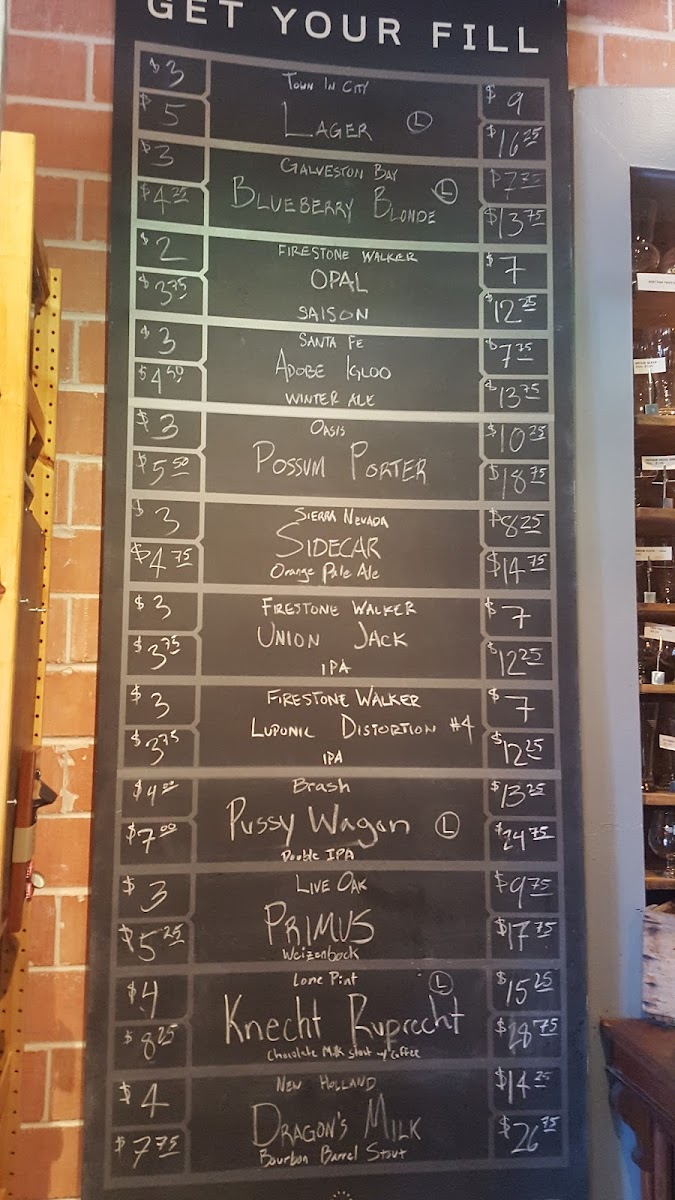 GET YOUR FILL
$3 Town In City $9
$5 LAGER Ⓛ $16 25
$3 GALVESTON BAY $7 75
$4 25 BLUEBERRY BLONDE Ⓛ $13 75
$2 FIRESTONE WALKER $7
OPAL
$3 75 SAISON $12 25
$3 SANTA FE $7 75
ADOBE IGLOO
$4 50 WINTER ALE $13 75
$3 OASIS $10 25
$5 50 POSSUM PORTER $18 75
$3 SIERRA NEVADA $8 25
SIDECAR
$4 75 Orange Pale Ale $14 75
$3 FIRESTONE WALKER $7
UNION JACK
$3 75 IPA $12 25
$3 FIRESTONE WALKER $7
LUPONIC DISTORTION #4
$3 75 IPA $12 25
$4 00 Brash $13 25
$7 00 Pussy Wagon Ⓛ $24 75
Double IPA
$3 LIVE OAK $9 75
$5 25 PRIMUS $17 75
Weizenbock
$4 Lone Pint Ⓛ $15 25
$8 25 Knecht Ruprecht $28 75
Chocolate Milk Stout w/ Coffee
$4 NEW HOLLAND $14 25
$7 75 DRAGON'S MILK $26 75
Bourbon Barrel Stout